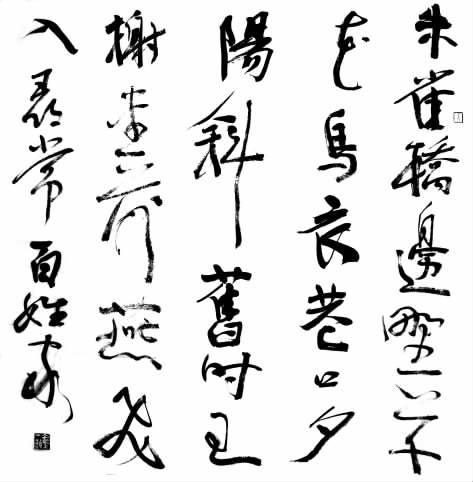 朱雀橋邊野草
花烏衣巷口夕
陽斜舊时王
榭堂前燕飛
入尋常百姓家